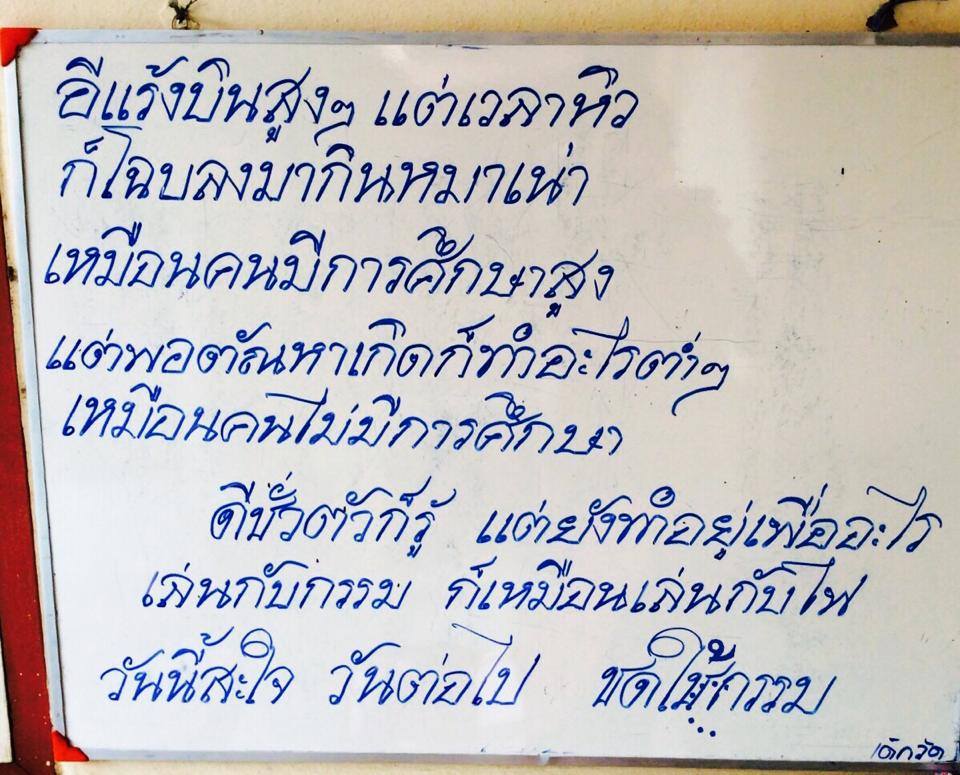 อีแร้งบินสูงๆ แต่เวลาหิว
ก็โฉบลงมากินหมาเน่า
เหมือนคนมีการศึกษาสูง
แต่พอตัณหาเกิดก็ทำอะไรต่ำๆ
เหมือนคนไม่มีการศึกษา
ดีชั่วตัวก็รู้ แต่ยังทำอยู่เพื่ออะไร
เล่นกับกรรม ก็เหมือนเล่นกับไฟ
วันนี้สะใจ วันต่อไป ชดใช้กรรม
เด็กวัด